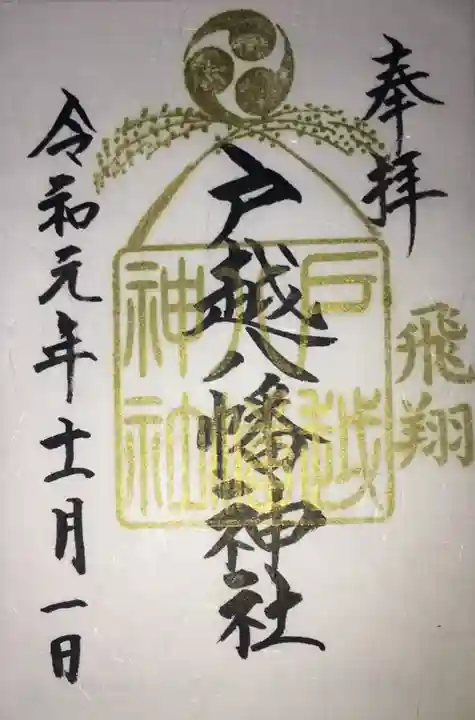 奉拝
飛翔
戸越八幡神社
戸越
八幡
神社
令和元年十一月一日